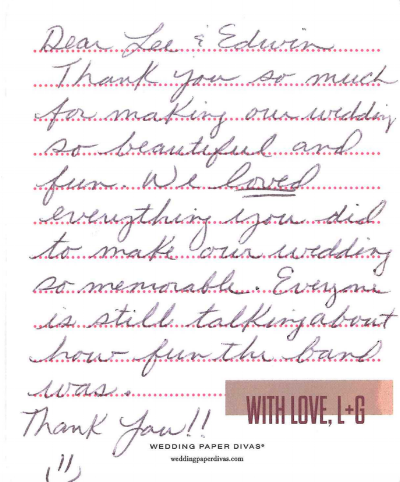 Dear Lee & Edwin
Thank you so much
for making our wedding
so beautiful and
fun. We loved
everything you did
to make our wedding
so memorable. Everyone
is still talking about
how fun the band
was.
WITH LOVE, L+G
Thank You!!
WEDDING PAPER DIVAS®
weddingpaperdivas.com